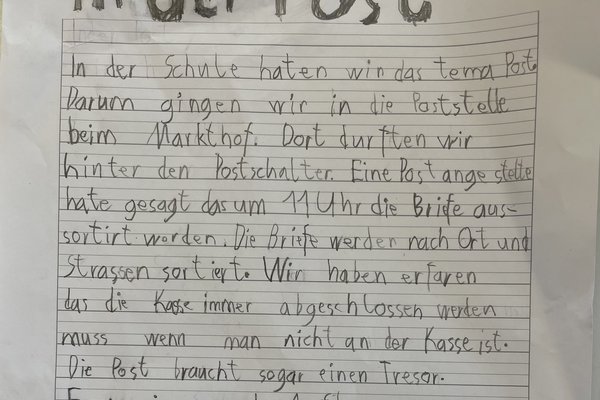 In der Post
In der Schule haten win das tema Post.
Darum gingen wir in die Poststelle
beim Markthof. Dort durften wir
hinter den Postschalter. Eine Post ange stellte
hate gesagt das um 11 Uhr die Briefe aus-
sortirt worden. Die Briefe werden nach Ort und
Strassen sortiert. Wir haben erfaren
das die Kasse immer abgeschlossen werden
muss wenn man nicht an der Kasse ist.
Die Post braucht sogar einen Tresor.